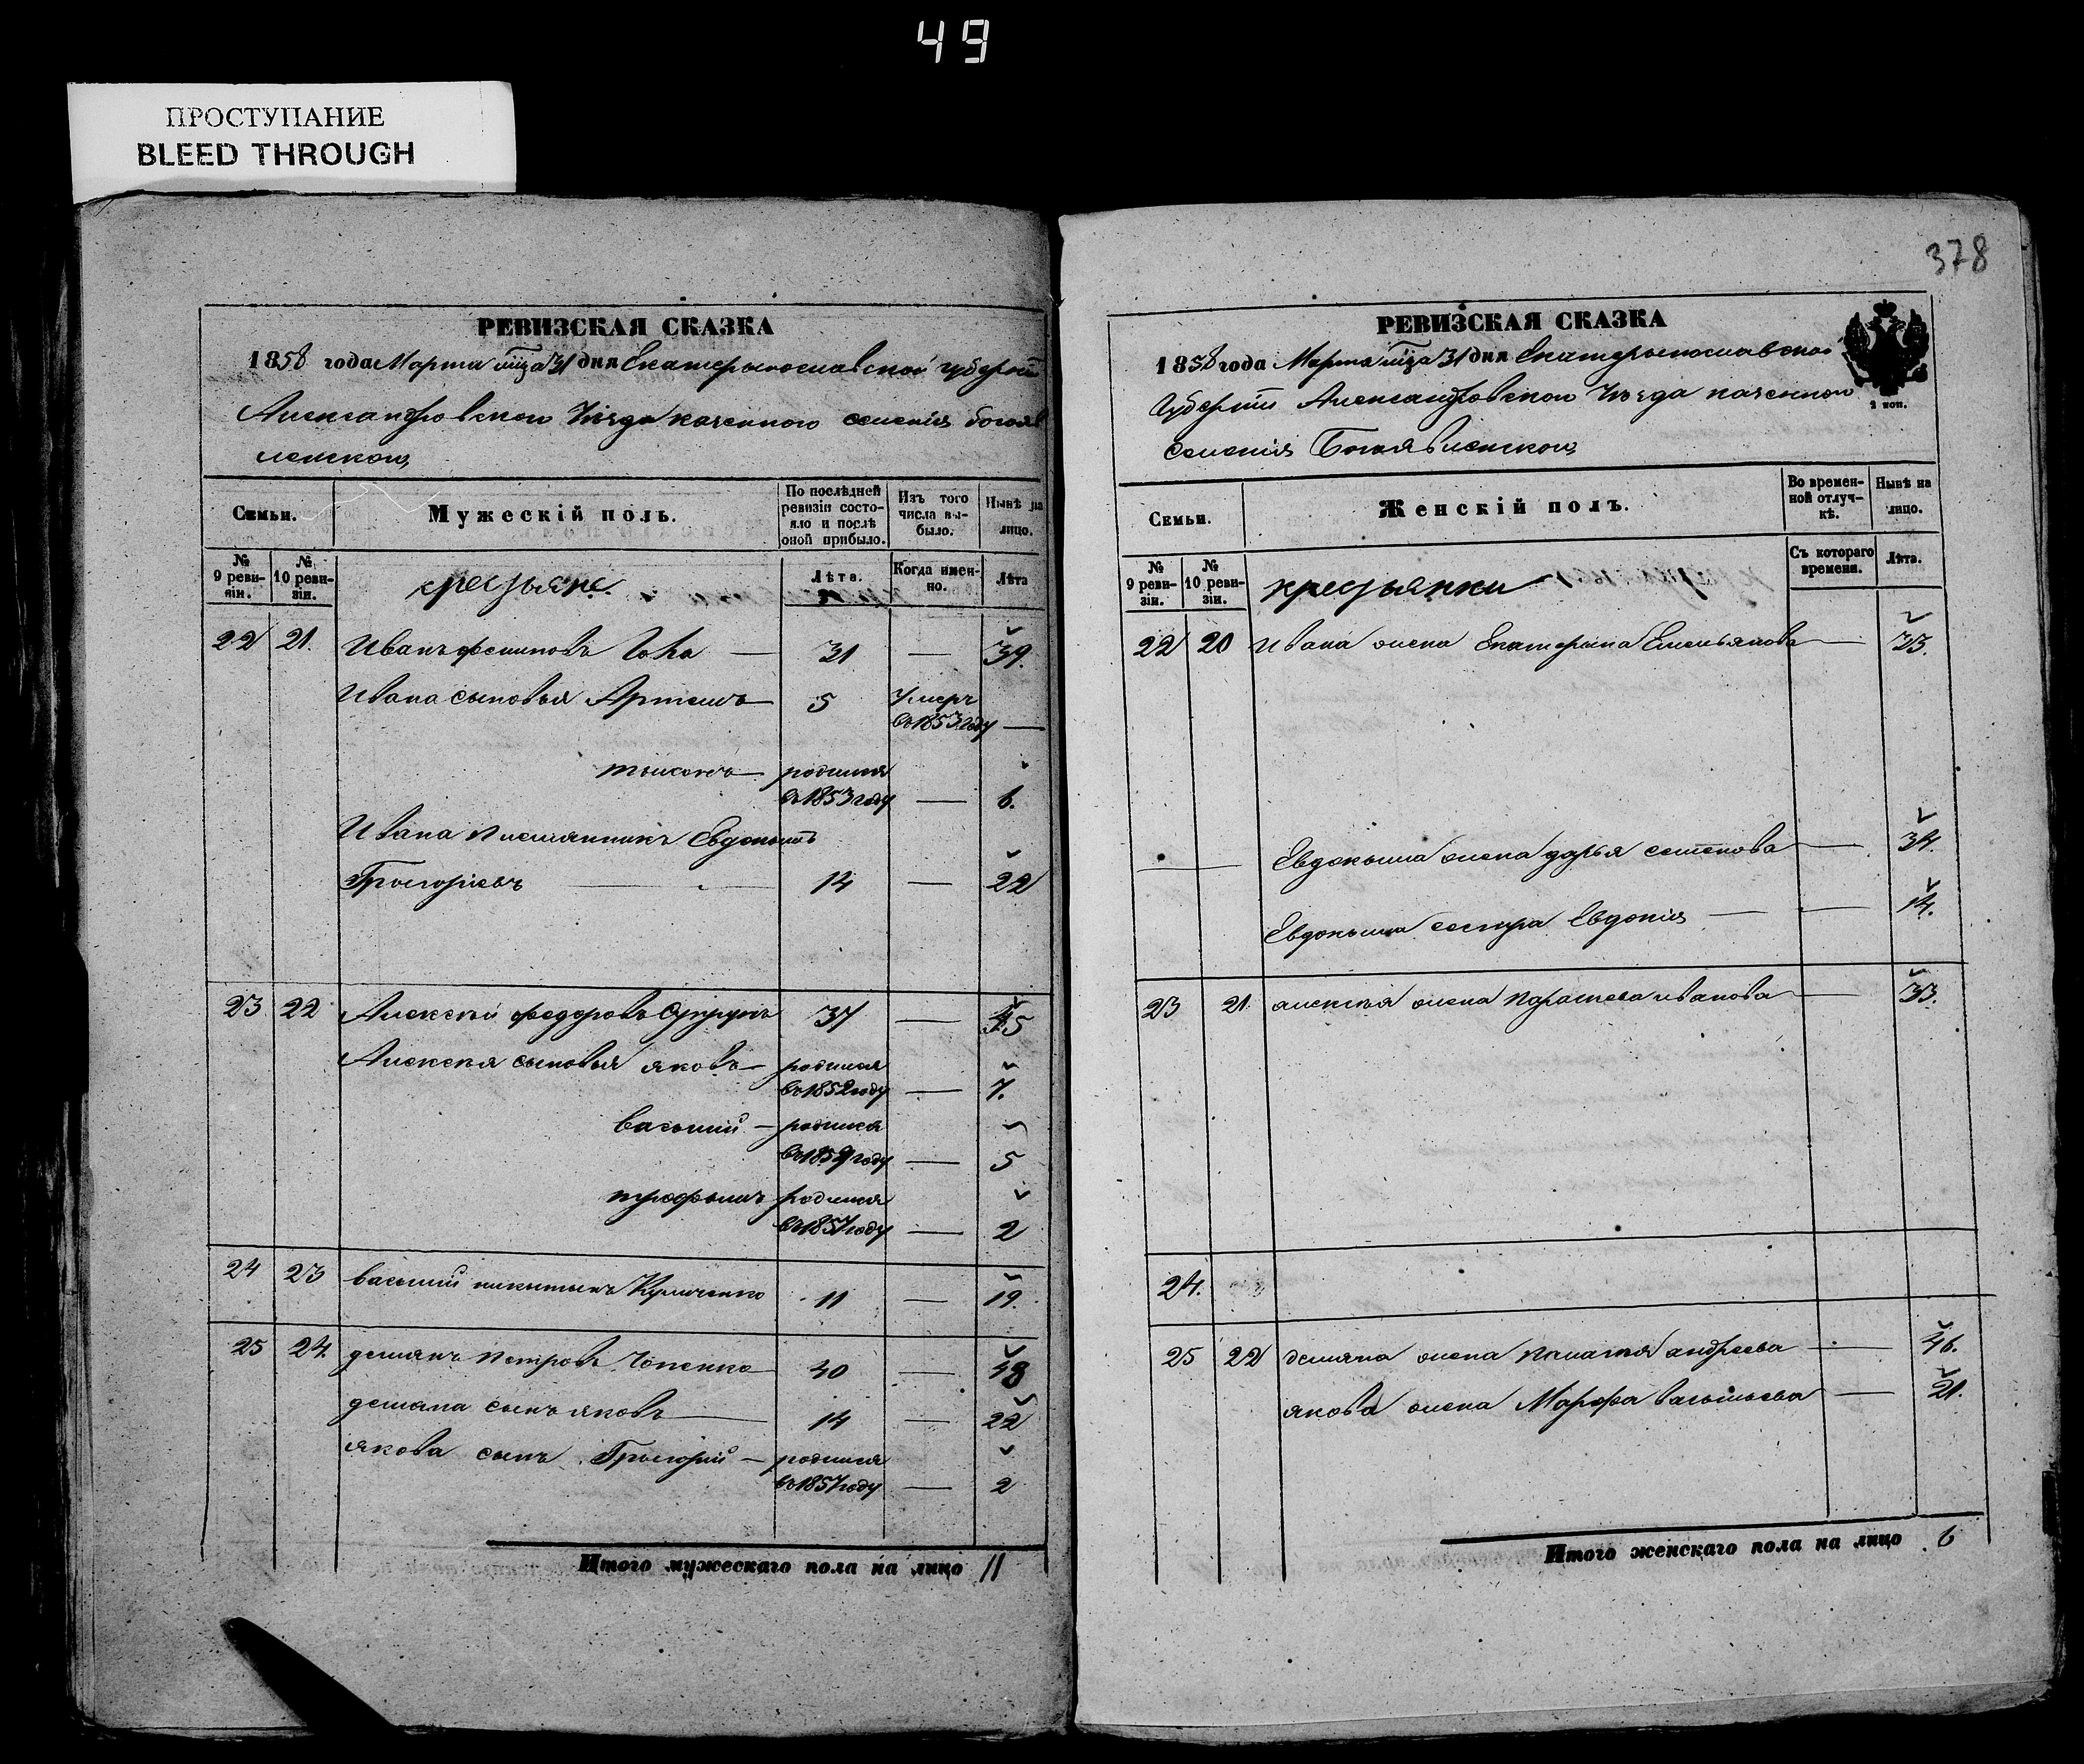 49
ПРОСТУПАНИЕ
BLEED THROUGH
РЕВИЗСКАЯ СКАЗКА
1858 года Марта мца 31 дня Екатеринославской губерніи
Александровскаго Уѣзда казенного селенія богояв
ленского
Семьи.
Мужескій полъ.
По послѣдней ревизіи состояло и послѣ оной прибыло.
Изъ того числа выбыло.
Нынѣ на лицо.
№ 9 ревизіи.
№ 10 ревизіи.
крестьяне
Лѣта.
Когда именно.
Лѣта
22 21. Иванъ 31 — 39.
Ивана сыновья Артемъ 5 умеръ
въ 1853 году —
родился
въ 1853 году — 6.
Ивана племянникъ Евдокимъ
Григорьевъ — 14 — 22
23 22 Алексѣй федоровъ Супрунъ 37 — 45
Алексея сыновья яковъ — родился
въ 1852 году — 7.
василий — родился
году — 5
трофимъ родился
въ 1857 году — 2
24 23 василий никитинъ 11 — 19.
25 24 демянъ петровъ 40 — 48
демяна сынъ яковъ — 14 — 22
якова сынъ Григорий — родился
въ 1857 году — 2
Итого мужескаго пола на лицо 11
378
РЕВИЗСКАЯ СКАЗКА
1858 года Марта мца 31 дня Екатеринославской
Губерніи Александровского Уѣзда казенного
2 коп.
селенія Богоявленского
Семьи.
Женскій полъ.
Во временной отлучкѣ.
Нынѣ на лицо.
№ 9 ревизіи.
№ 10 ревизіи.
крестьянки
Съ котораго времени.
Лѣта.
22 20 Ивана жена Екатерина Емельянова — 33.
— Евдокима жена дарья семенова — 34.
Евдокима сестра Евдокия — — 14.
23 21. алексея жена Параскева иванова — 33.
24.
25 22 демяна жена Пелагея андреева — 46.
якова жена Марфа васильева — 21.
Итого женскаго пола на лицо 6